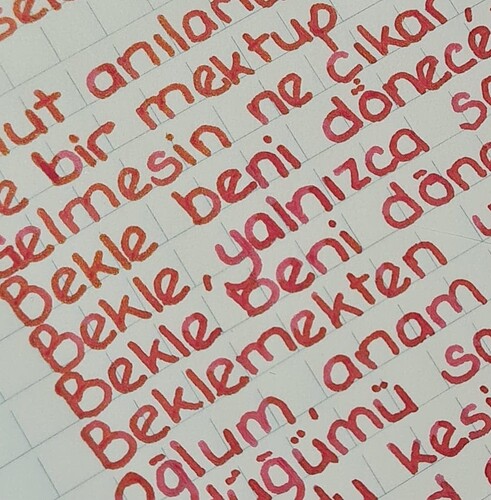 anılar
bir mektup
Gelmesin ne çıkar,
Bekle beni dönece
Bekle, yalnızca so
Bekle beni döne
Beklemekten
Oğlum, anam
düğümü
kesi